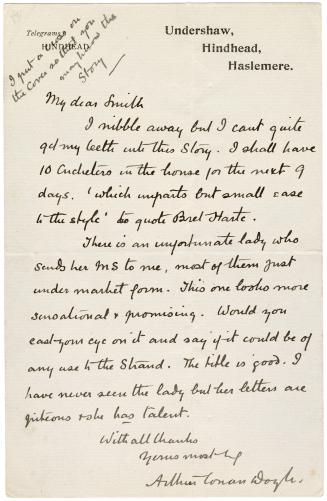 Telegrams,
HINDHEAD.
I put a cross on
the cover so that you
may know the
Story
Undershaw,
Hindhead,
Haslemere.
My dear Smith
I nibble away but I cant quite
get my teeth into this Story. I shall have
10 Cricketers in the house for the next 9
days, 'which imparts but small ease
to the style' to quote Bret Harte.
There is an unfortunate lady who
sends her MS to me, most of them just
under market form. This one looks more
sensational & promising. Would you
cast your eye on it and say if it could be of
any use to the Strand. The title is good. I
have never seen the lady but her letters are
piteous & she has talent.
With all thanks
Yours most
Arthur Conan Doyle.